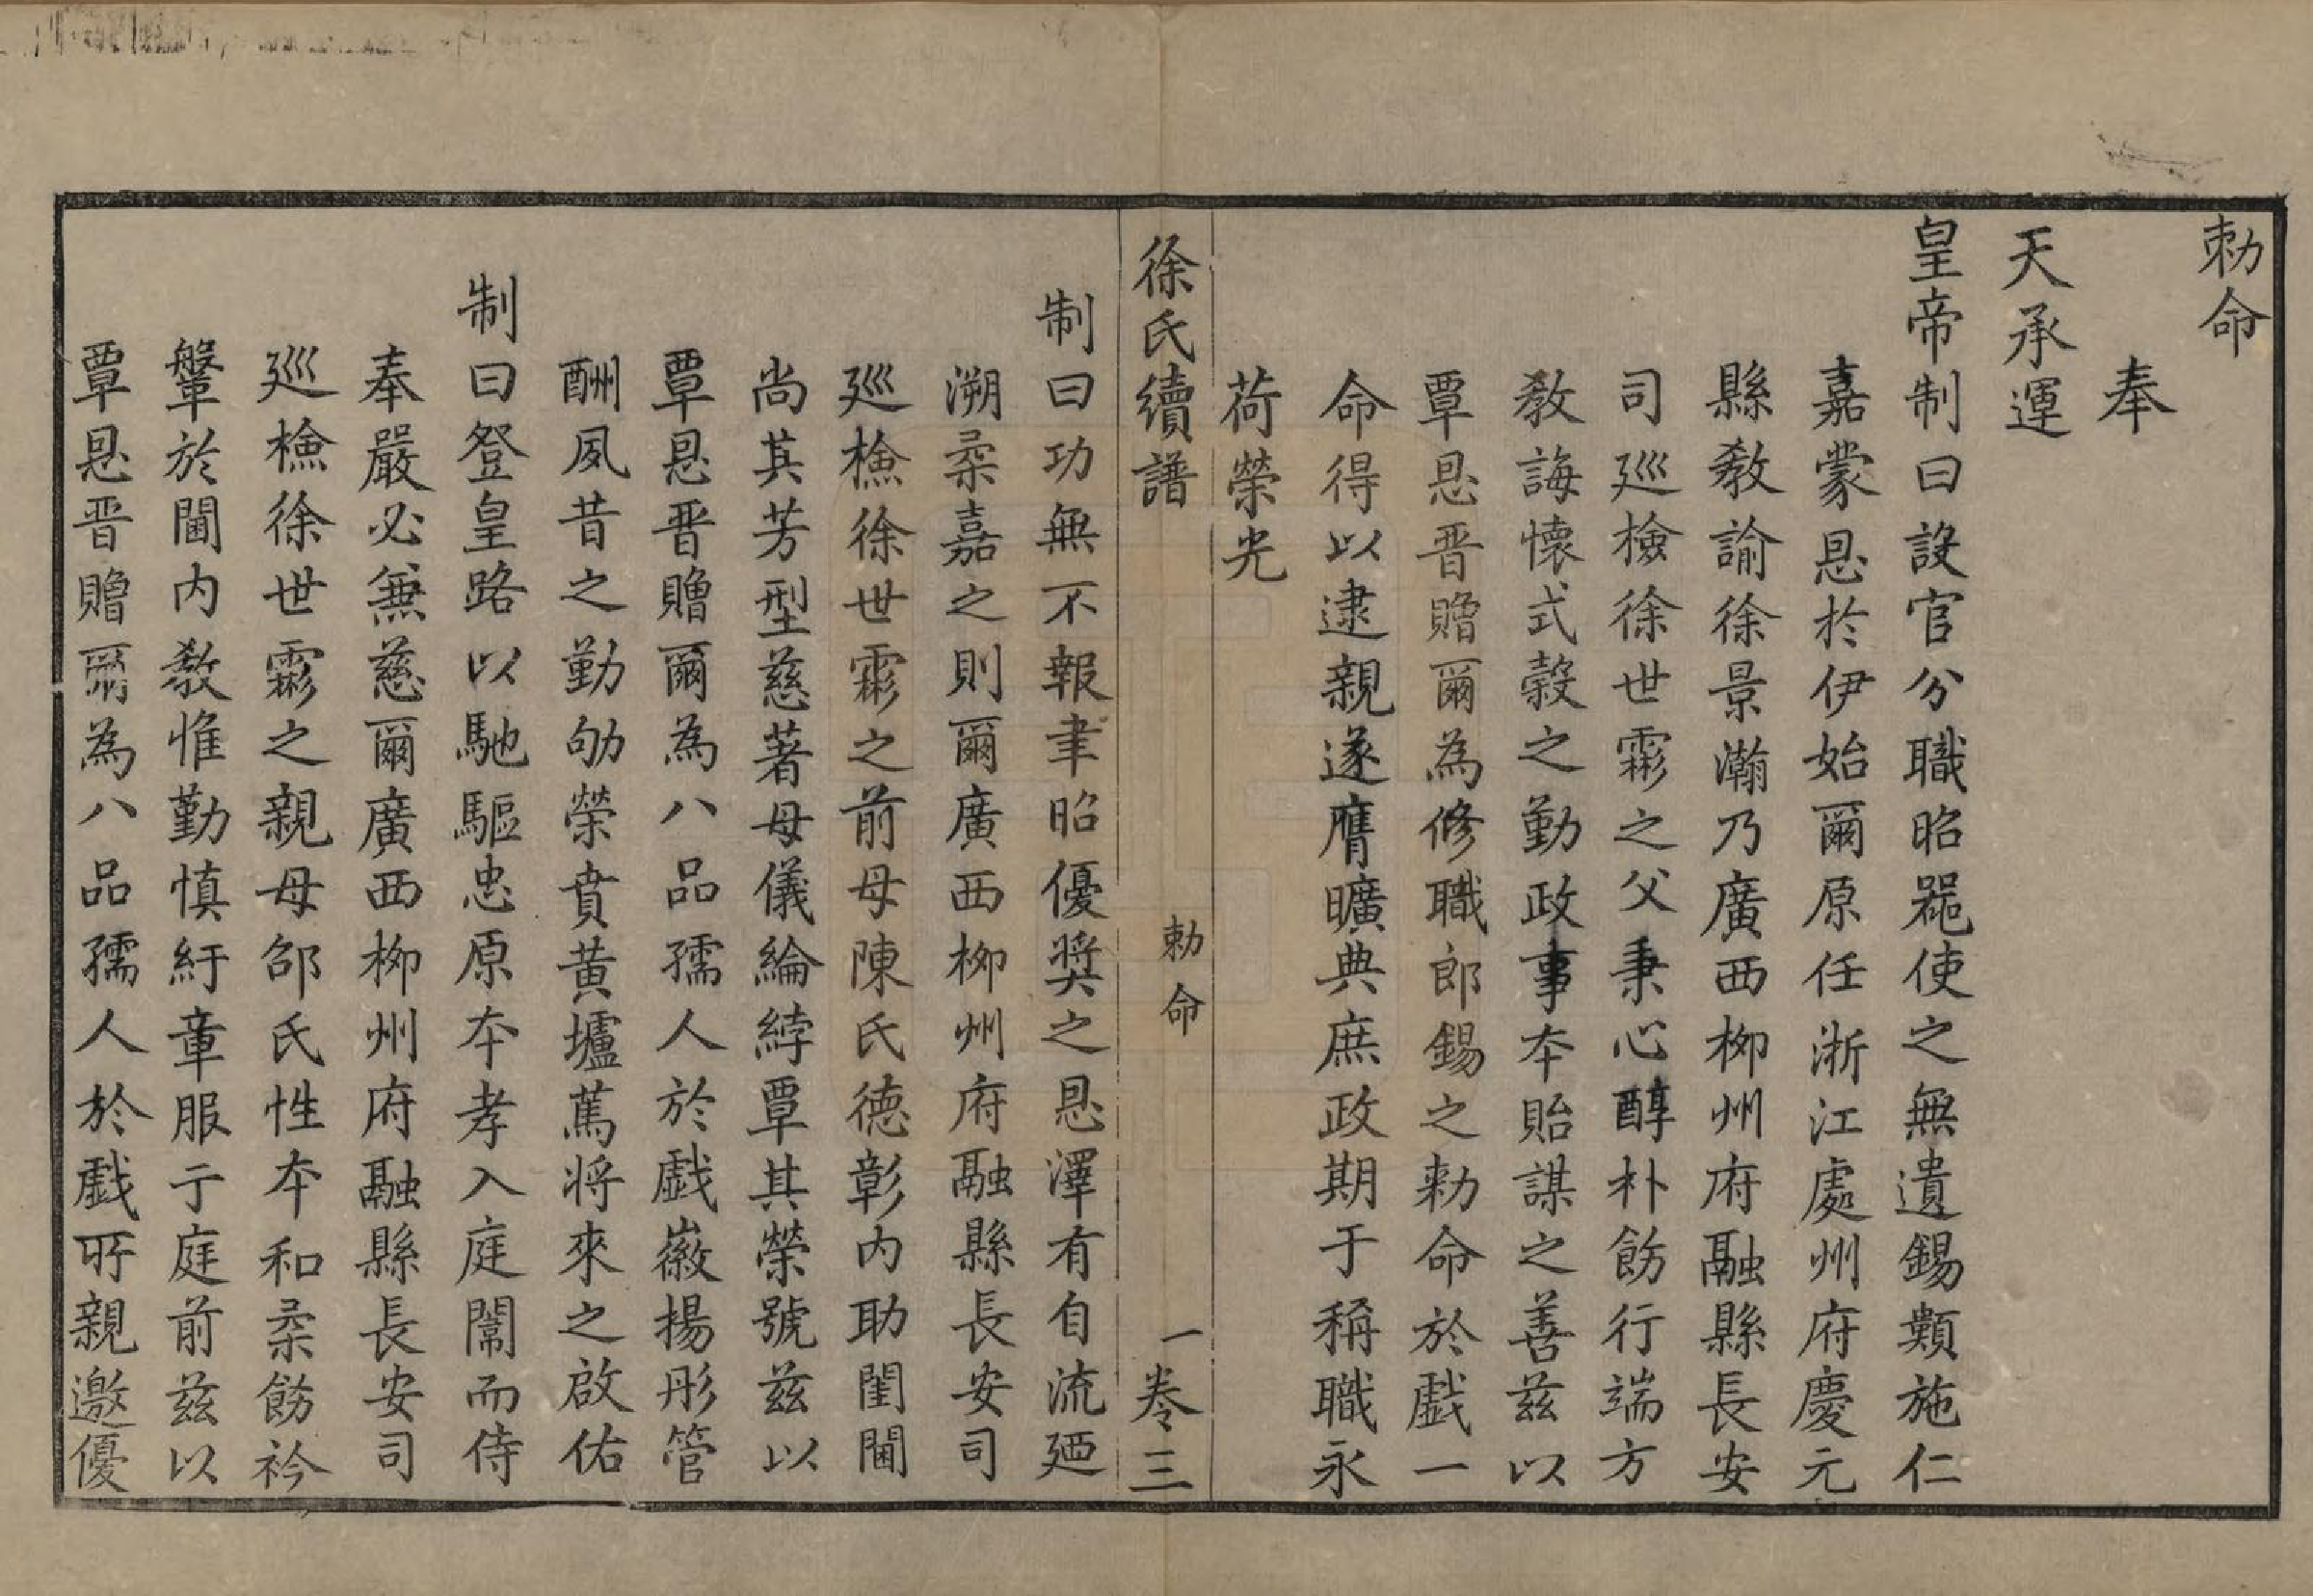 勅命
奉
天承運
皇帝制曰設官分職昭器使之無遺錫類施仁
嘉蒙恩於伊始爾原任浙江處州府慶元
縣教諭徐景瀚乃廣西柳州府融縣長安
司廵檢徐世霦之父秉心醇朴飭行端方
教誨懷式榖之勤政事夲貽謀之善兹以
覃恩晋贈爾為修職郎錫之勅命於戯一
命得以逮親遂膺曠典庶政期于稱職永
荷榮光
徐氏續譜
勅命
一
卷三
制曰功無不報聿昭優奬之恩澤有自流廼
溯柔嘉之則爾廣西柳州府融縣長安司
廵檢徐世霦之前母陳氏德彰內助閨閫
尚其芳型慈著母儀綸綍覃其榮號兹以
覃恩晋贈爾為八品孺人於戯徽揚彤管
酬夙昔之勤劬榮賁黄壚篤将來之啟佑
制曰登皇路以馳驅忠原夲孝入庭闈而侍
奉嚴必兼慈爾廣西柳州府融縣長安司
廵檢徐世霦之親母邵氏性夲和柔飭衿
鞶於閫内教惟勤慎紆章服于庭前兹以
覃恩晋贈爾為八品孺人於戯所親邀優